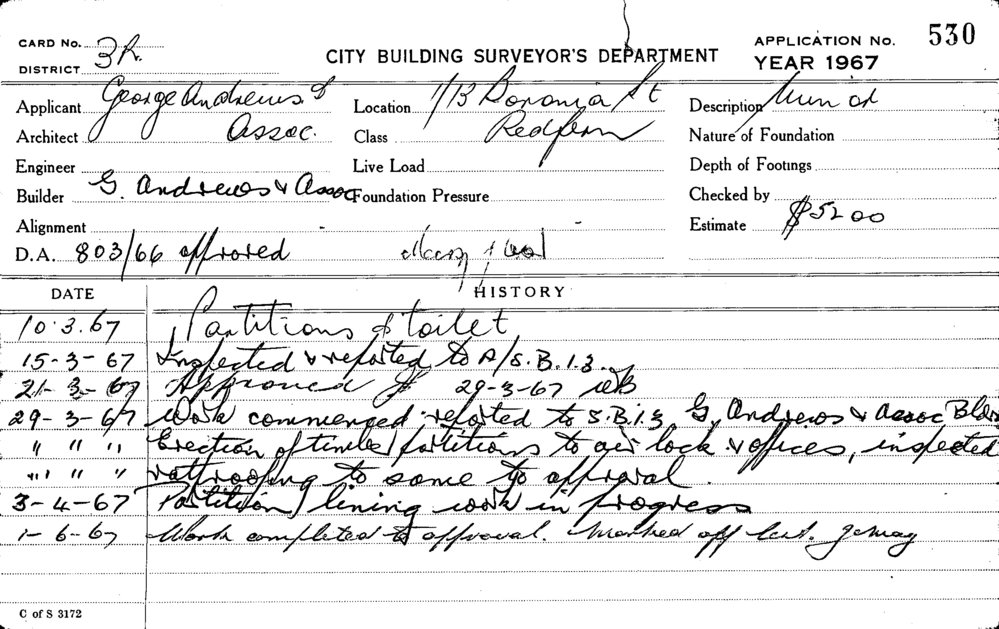 530
CARD No. 3R.
DISTRICT
CITY BUILDING SURVEYOR'S DEPARTMENT
APPLICATION No.
YEAR 1967
Applicant George Andrews &
Location 1/13 Boronia St
Description
Architect Assoc.
Class Redfern
Nature of Foundation
Engineer
Live Load
Depth of Footings
Builder G. Andrews & Assoc
Foundation Pressure
Checked by
Alignment
Estimate $5200
D.A. 803/66 approved
DATE HISTORY
10.3.67 Partitions & toilet
15-3-67 Inspected & reported to A/S.B.I.3.
21-3-67 Approved 29-3-67
29-3-67 Work commenced reported to S.B.I.3 G. Andrews & Assoc Bldrs
" " " Erection of timber partitions to air lock & offices, inspected
" " " ratproofing to same to approval.
3-4-67 Partition lining work in progress
1-6-67 Work completed to approval. Marked off list.
C of S 3172